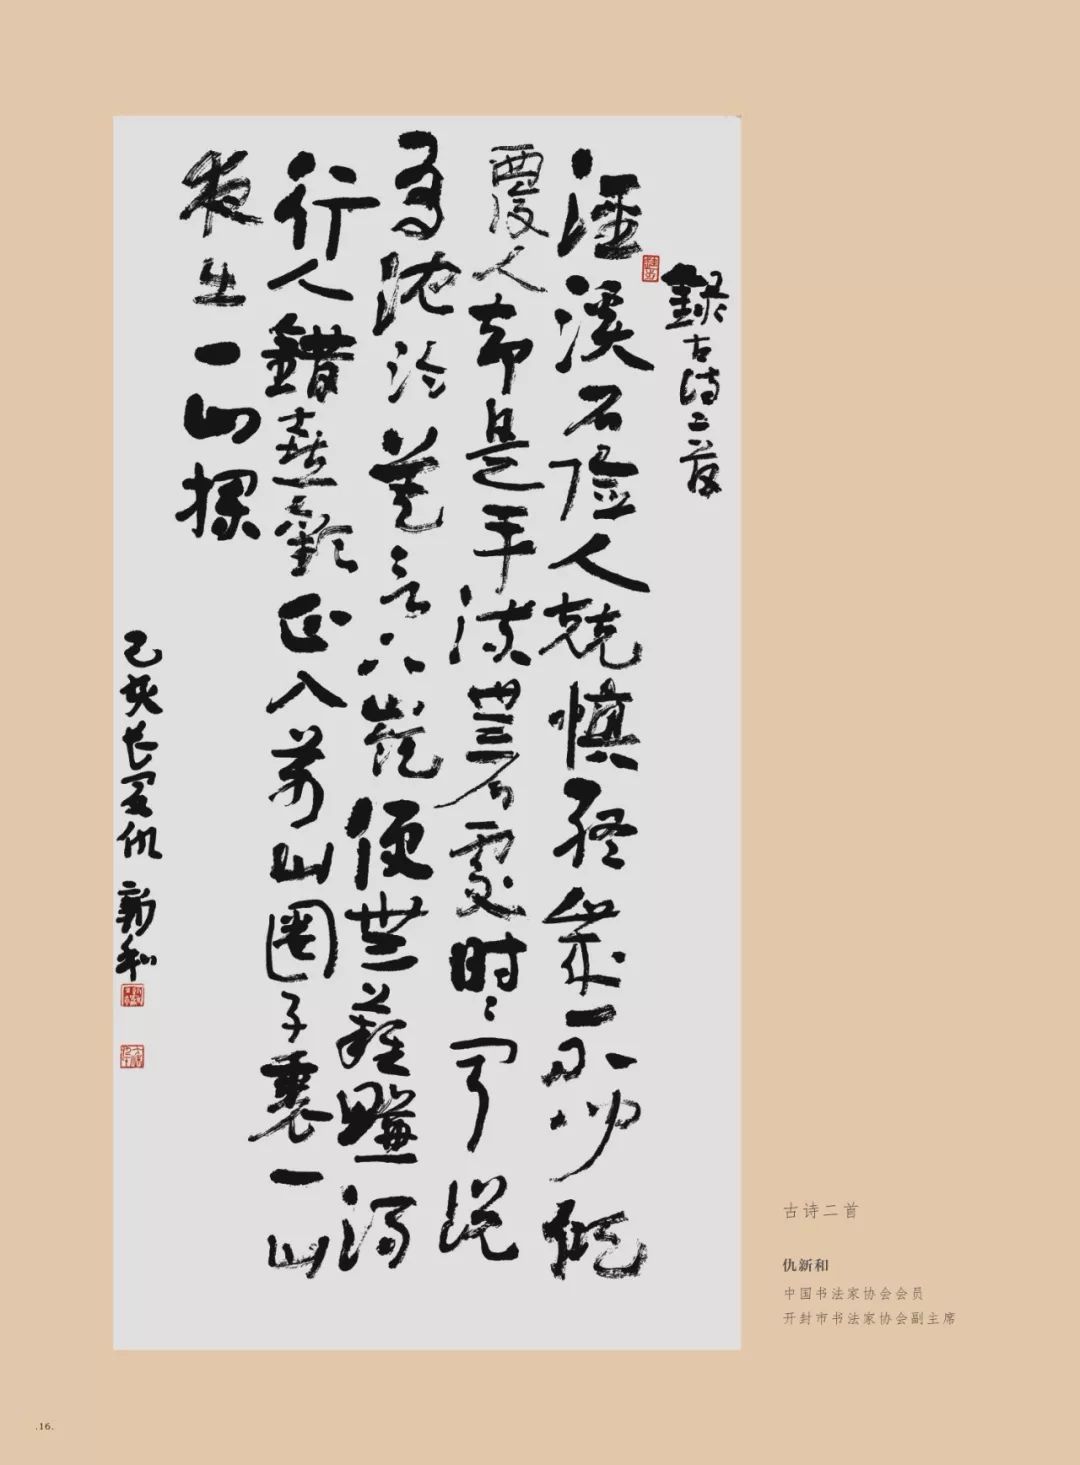 錄古詩二首
涇溪石險人兢慎終歲不聞傾
覆人卻是平流無石處時々聞説
有沈淪莫言下嶺便無難賺得
行人錯喜歡正入萬山圈子裏一山
放出一山攔
己亥長夏仇新和
古诗二首
仇新和
中国书法家协会会员
开封市书法家协会副主席
.16.